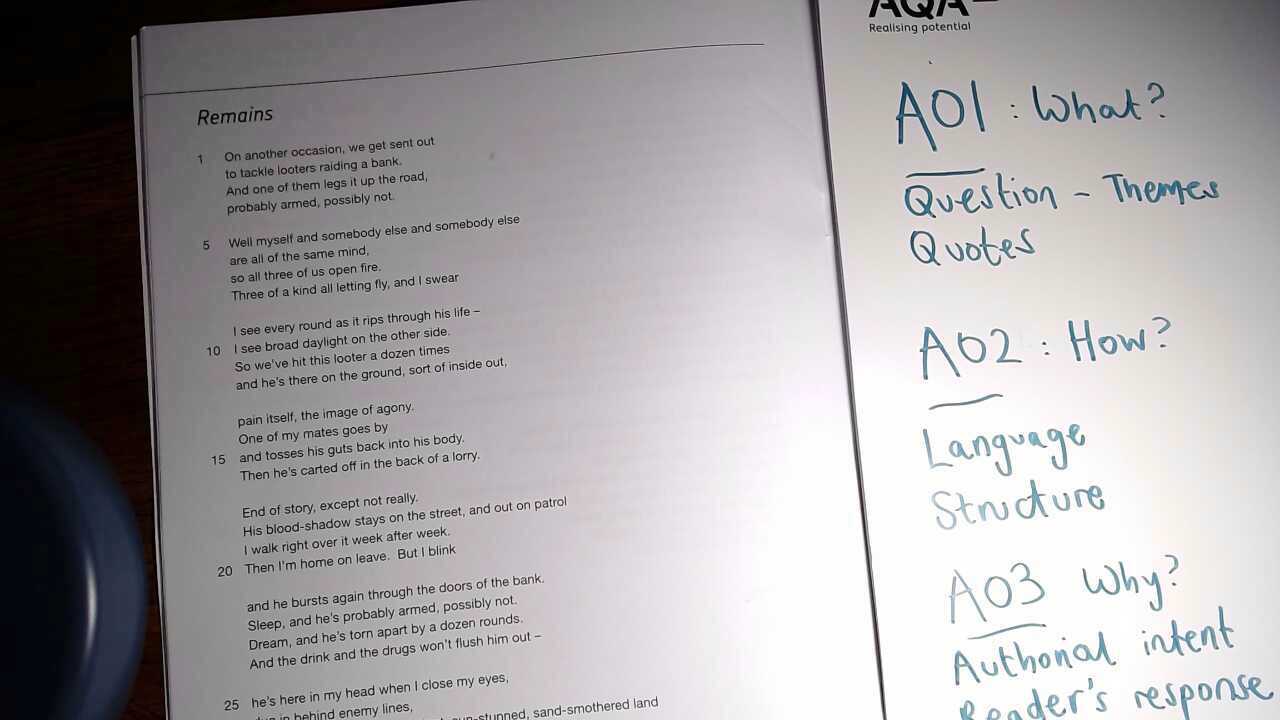 Remains
1 On another occasion, we get sent out
to tackle looters raiding a bank.
And one of them legs it up the road,
probably armed, possibly not.
5 Well myself and somebody else and somebody else
are all of the same mind,
so all three of us open fire.
Three of a kind all letting fly, and I swear
I see every round as it rips through his life –
10 I see broad daylight on the other side.
So we've hit this looter a dozen times
and he's there on the ground, sort of inside out,
pain itself, the image of agony.
One of my mates goes by
15 and tosses his guts back into his body.
Then he's carted off in the back of a lorry.
End of story, except not really.
His blood-shadow stays on the street, and out on patrol
I walk right over it week after week.
20 Then I'm home on leave. But I blink
and he bursts again through the doors of the bank.
Sleep, and he's probably armed, possibly not.
Dream, and he's torn apart by a dozen rounds.
And the drink and the drugs won't flush him out –
25 he's here in my head when I close my eyes,
dug in behind enemy lines,
sun-stunned, sand-smothered land
AQA
Realising potential
AO1 : What?
Question – Themes
Quotes
AO2 : How?
Language
Structure
AO3 Why?
Authorial intent
Reader's response